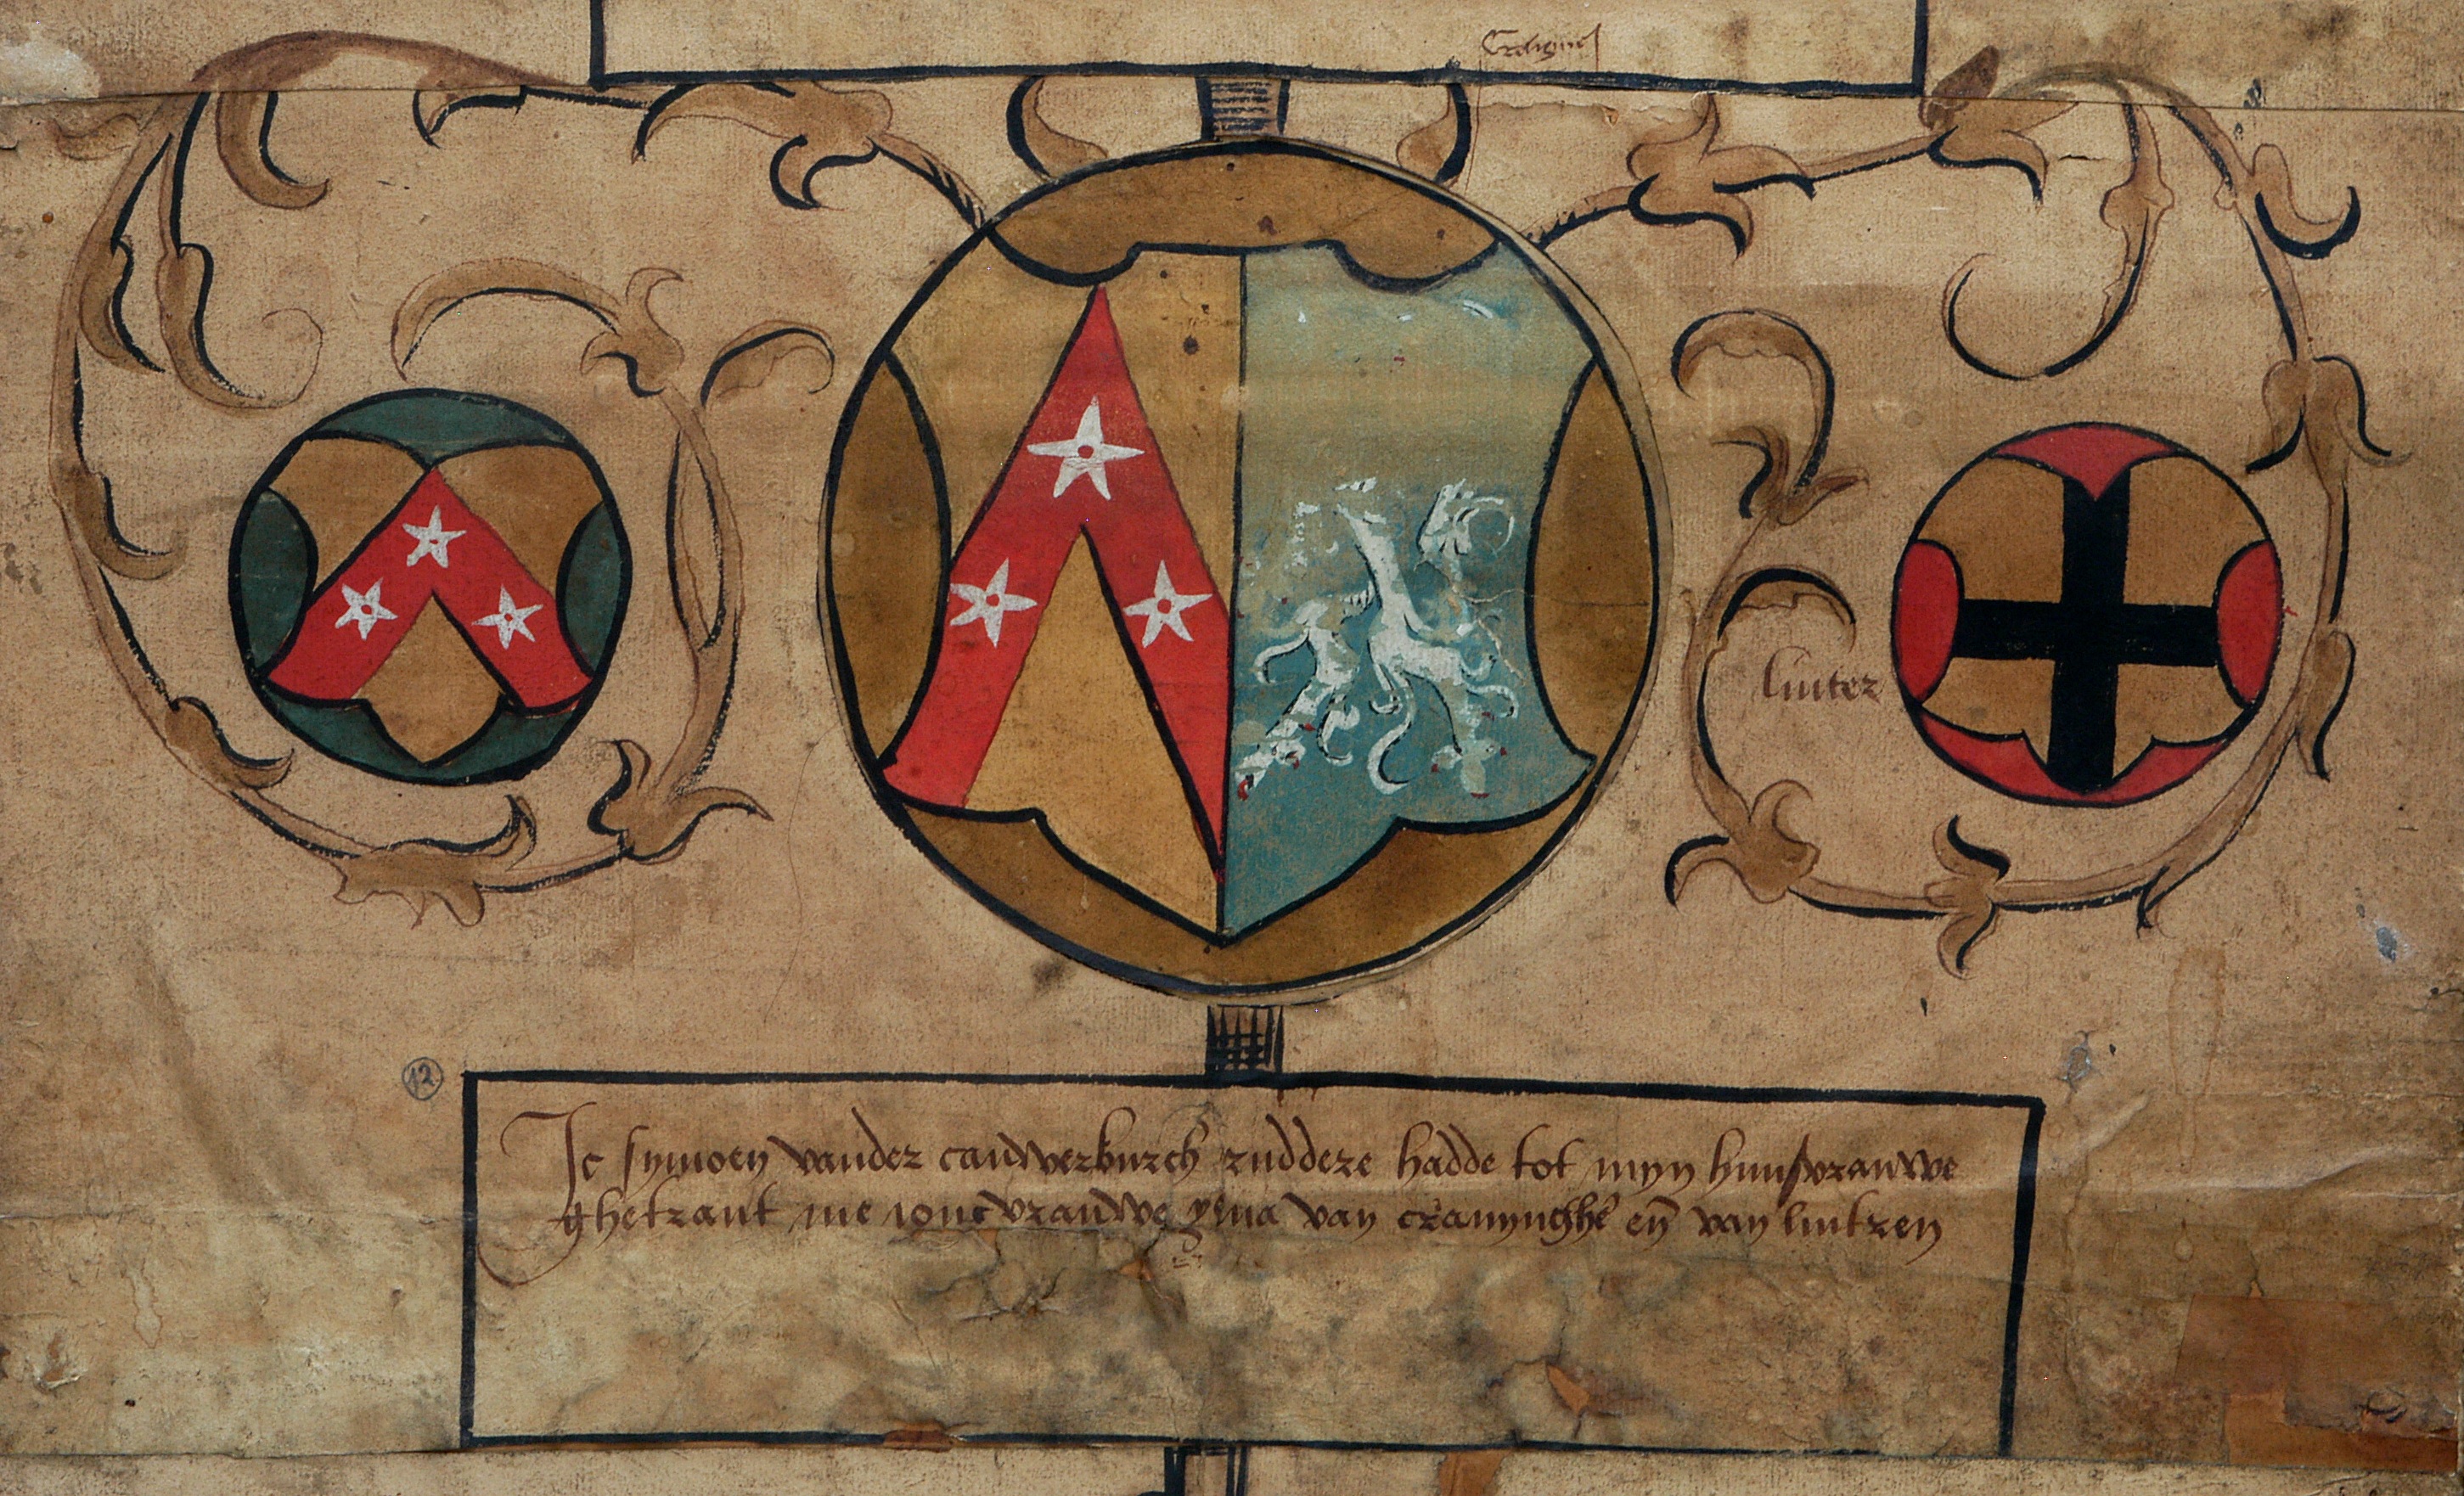 liuter
12
Ic symoen vander cauwerburch ruddere hadde tot myn huusvrauwe
ghetraut me joncvrauwe yma van craenynghe en van lintren